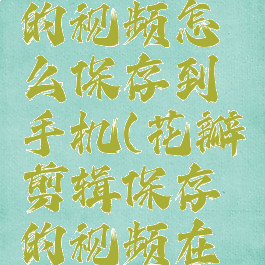 的视频怎
么保存到
手机(花瓣
剪辑保存
的视频在